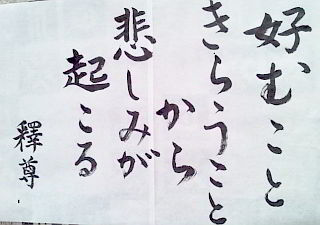 好むこと
きらうこと
から
悲しみが
起こる
釋尊